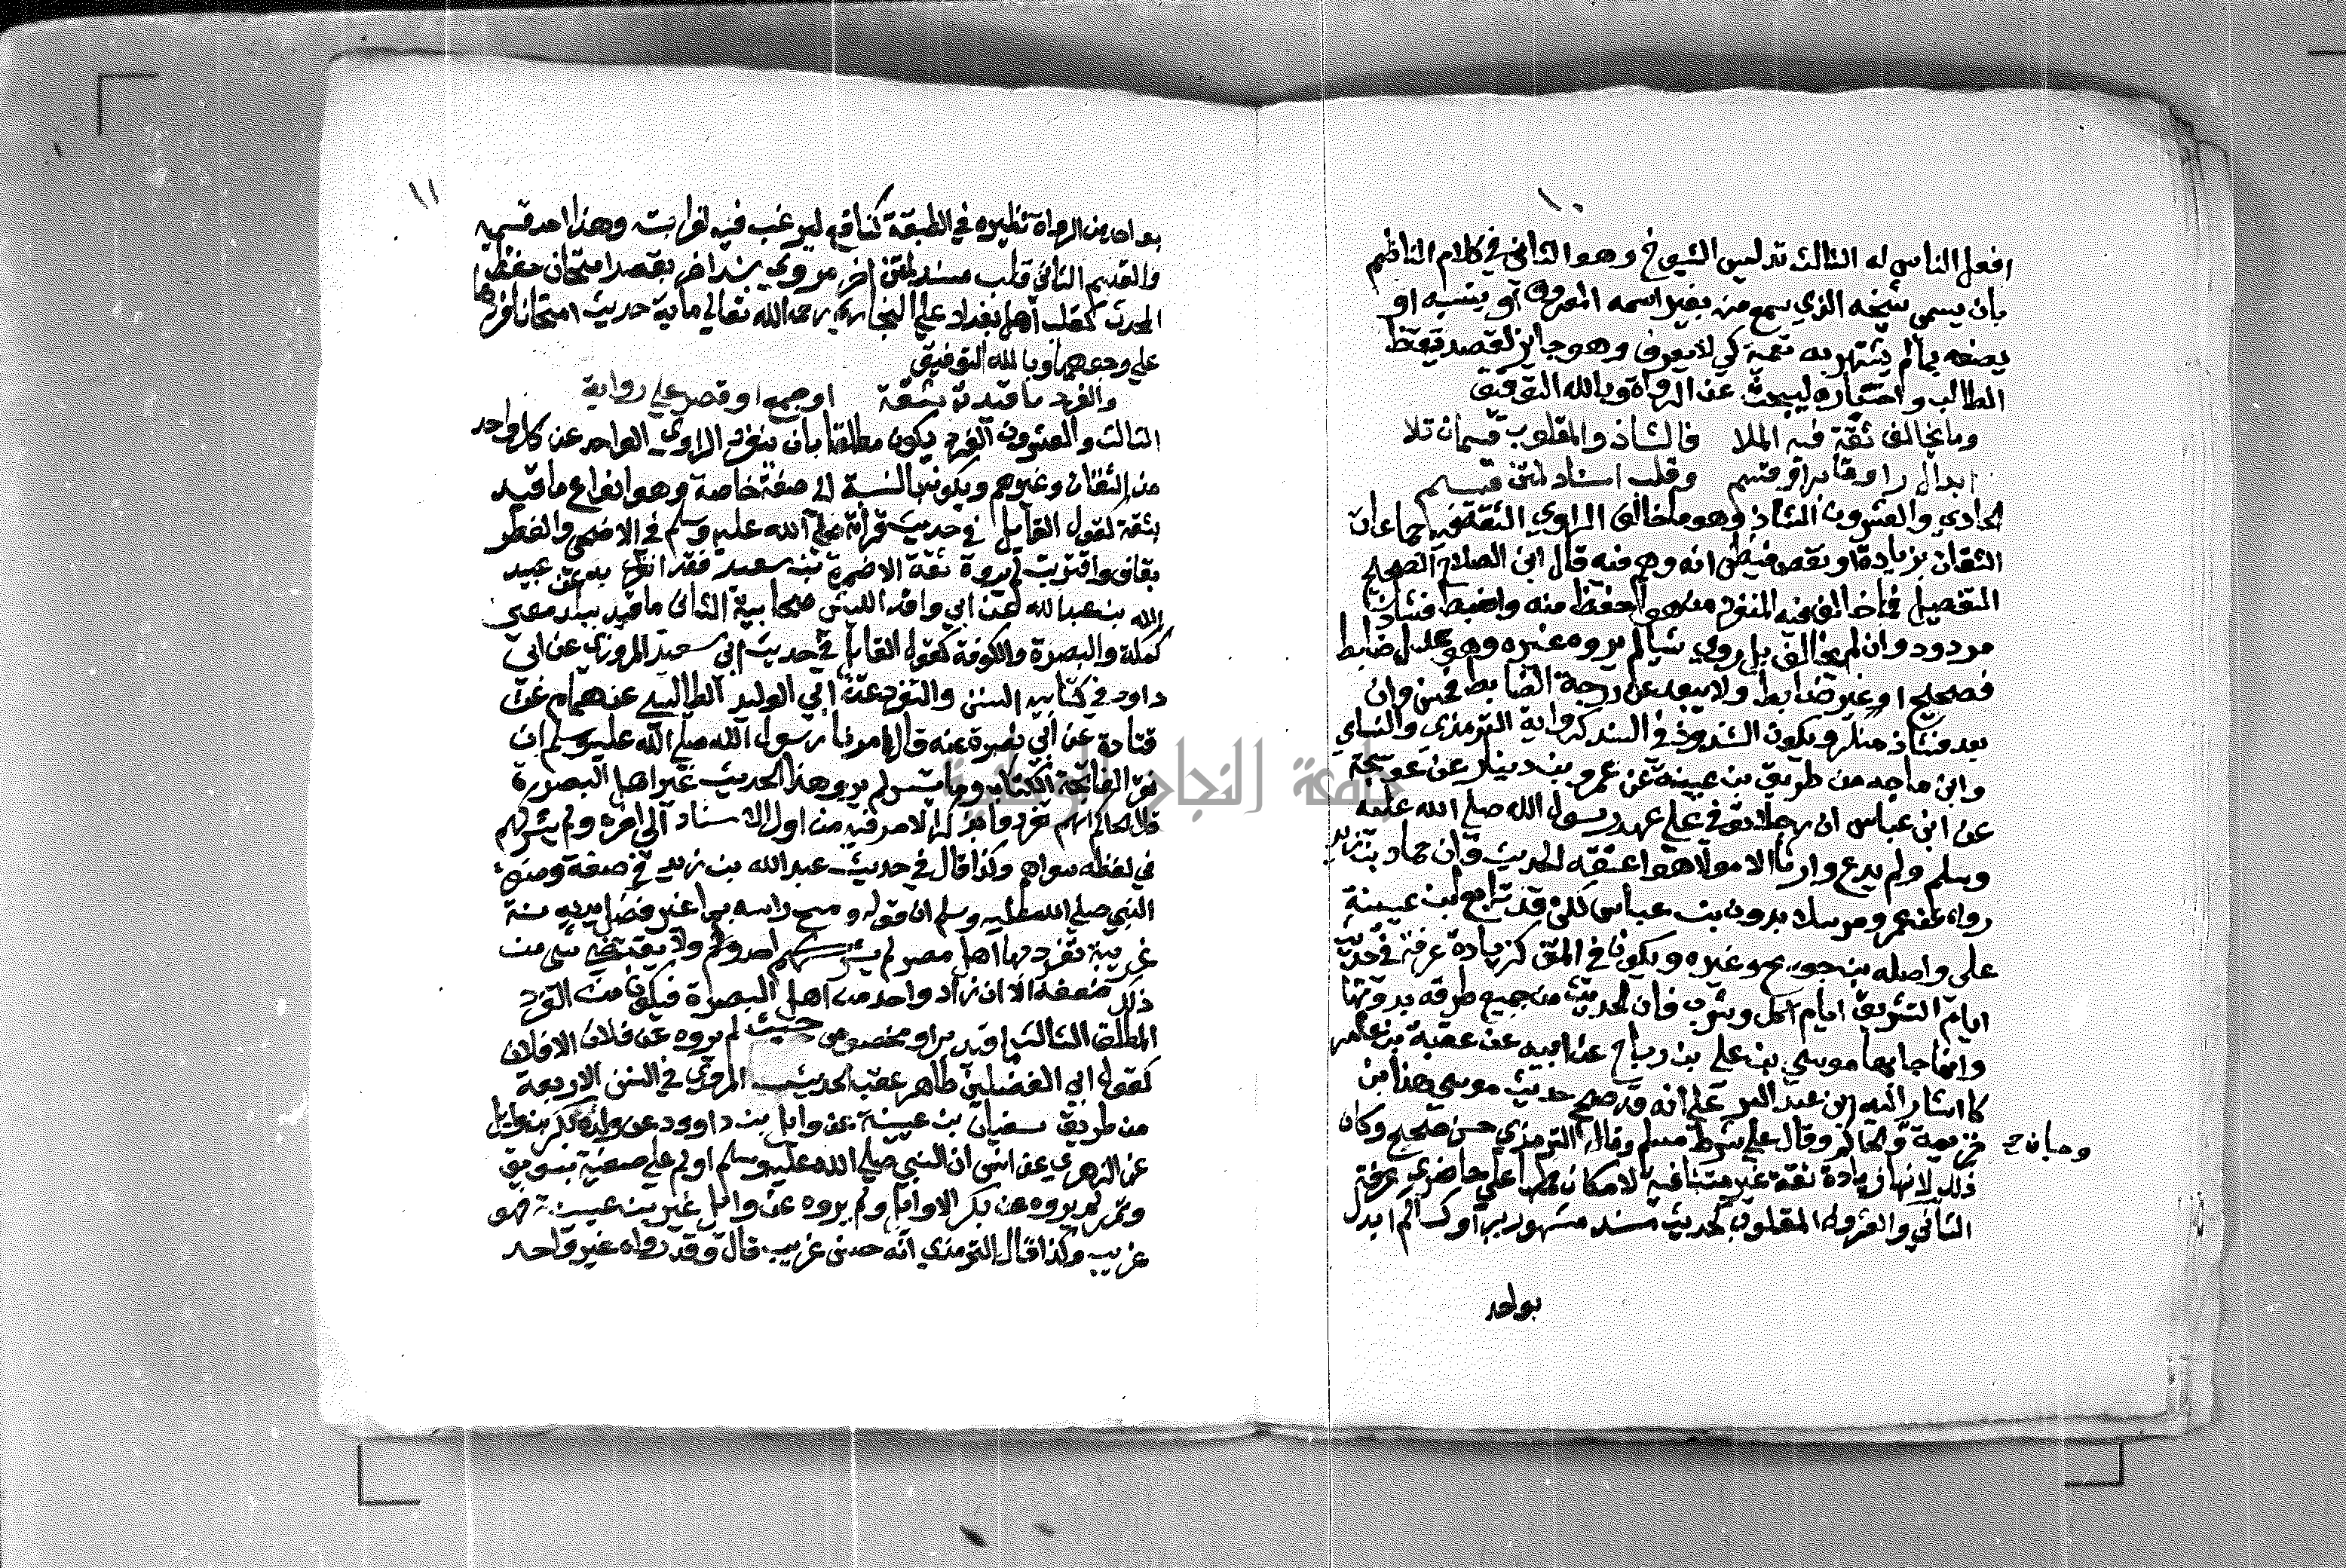 ١٠
افعل الناس له الثالث تدليس الشيوخ وهو الثاني في كلام الناظم
بان يسمى شيخه الذي سمع منه بغير اسمه المعروف أو ينسبه او
يصفه بما لم يشتهر به تعمية كي لا يعرف وهو جايز لقصد تيقظ
الطالب واختباره ليبحث عن الرواة وبالله التوفيق
وما يخالف ثقة فيه الملا فالشاذ والمقلوب قسمان تلا
ابدال راو ما براو قسم وقلب اسناد لمتن قسم
الحادي والعشرون الشاذ وهو ما خالف الراوي الثقة فيه جماعات
الثقات بزيادة او نقص فيظن انه وهم فيه قال ابن الصلاح الصحيح
التفصيل فما خالف فيه المنفرد من هو احفظ منه واضبط فشاذ
مردود وان لم يخالف بل روي شيا لم يروه غيره وهو عدل ضابط
فصحيح او غير ضابط ولا يبعد عن درجة الضابط فحسن وان
بعد فشاذ منكر ويكون الشذوذ في السند كرواية الترمذي والنساي
وابن ماجه من طريق بن عيينة عن عمرو بن دينار عن عوسجة
عن ابن عباس ان رجلا توفي علي عهد رسول الله صلى الله عليه
وسلم ولم يدع وارثا الا مولا هو اعتقه الحديث وان حماد بن زيد
رواه عن عمرو مرسلا بدون بن عباس لكن قد تابع بن عيينة
على وصله بن جريج وغيره ويكون في المتن كزيادة عرفة في حديث
ايام التشريق ايام اكل وشرب فان الحديث من جميع طرقه بدونها
وانما جا بها موسي بن علي بن رباح عن ابيه عن عقبة بن عامر
كما اشار اليه ابن عبد البر علي انه قد صحح حديث موسي هذا بن
خزيمة والحاكم وقال علي شرط مسلم وقال الترمذي حسن صحيح وكان
وحبان صح
ذلك لانها زيادة ثقة غير متنافية لامكان حملها علي حاضري عرفة
الثاني والعشرون المقلوب كحديث مسند مشهور براو كسالم ابدل
بواحد
١١
بواحد من الرواة نظيره في الطبقة كنافع ليرغب فيه لغرابته وهذا احد قسميه
والقسم الثاني قلب مسند لمتن اخر مروي بسند اخر بقصد امتحان حفظ
المحدث كقلب أهل بغداد علي البخاري رحمه الله تعالي ماية حديث امتحانا فردها
علي وجوهها وبالله التوفيق
والفرد ما قيدته بثقة او جمع او قصر علي رواية
الثالث والعشرون الفرد يكون مطلقا بان ينفرد الراوي الواحد عن كل واحد
من الثقات وغيرهم ويكون بالنسبة الى صفة خاصة وهو انواع ما قيد
بثقة كقول القايل في حديث قراته صلى الله عليه وسلم في الاضحى والفطر
بقاف واقتربت لم يروه ثقة الا ضمرة بن سعيد فقد انفرد به عن عبيد
الله بن عبد الله عن ابي واقد الليثي صحابية الثاني ما قيد ببلد معين
كمكة والبصرة والكوفة كقول القايل في حديث ابي سعيد المروزي عن ابي
داود في كتابيه السنن والتفرد عن ابي الوليد الطيالسي عن همام عن
قتادة عن ابي نضرة عنه قال امرنا رسول الله صلى الله عليه وسلم ان
نقرا الفاتحة الكتاب وما تيسر لم يرو هذا الحديث غير اهل البصرة
قال الحاكم انهم تفردوا بذكر الامر فيه من اول الاسناد الى اخره ولم يشركهم
في لفظه سواهم وكذا قال في حديث عبد الله بن زيد في صفة وضوء
النبي صلي الله عليه وسلم ان قوله ومسح راسه بما غير فضل يديه سنة
غريبة تفرد بها اهل مصر لم يشركهم احد ولم ولا يقتضي شي من
ذلك ضعفه الا ان يراد واحد من اهل البصرة فيكون من الفرد
المطلق الثالث ما قيد براو مخصوص حيث لم يروه عن فلان الا فلان
كقول ابي الفضل بن طاهر عقب الحديث المروي في السنن الاربعة
من طريق سفيان بن عيينة عن وايل بن داوود عن ولده بكر بن وايل
عن الزهري عن انس ان النبي صلي الله عليه وسلم اولم علي صفية بسويق
وتمر لم يروه عن بكر الا وايل ولم يروه عن وايل غير بن عيينة فهو
غريب وكذا قال الترمذي انه حسن غريب قال وقد رواه غير واحد
جامعة النجاح الوطنية